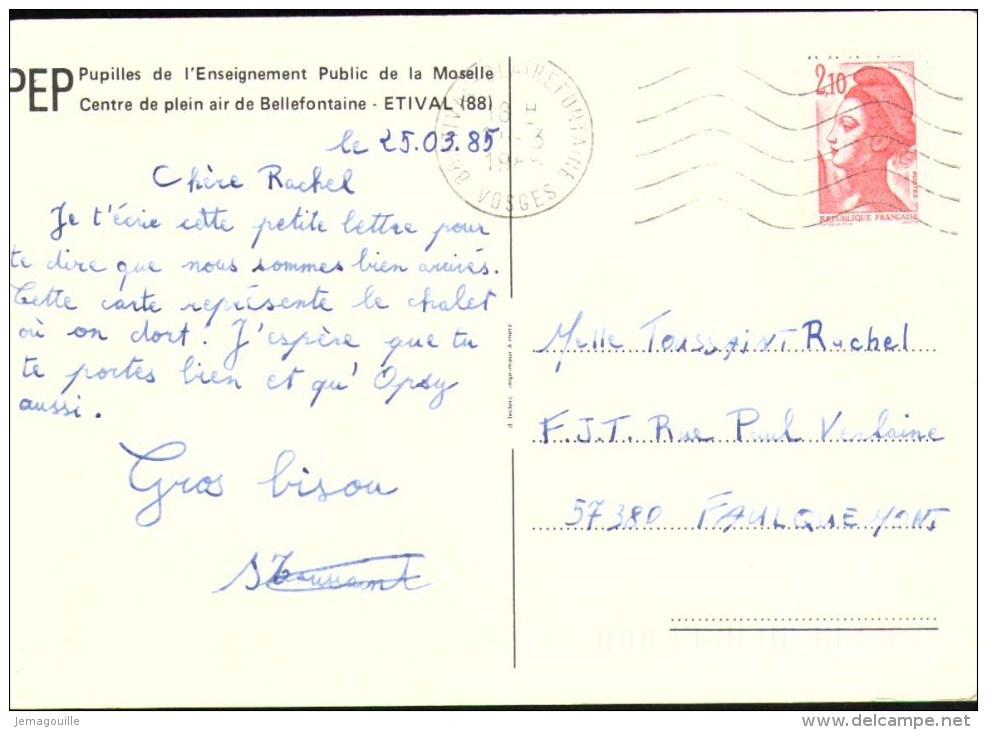 PEP
Pupilles de l'Enseignement Public de la Moselle
Centre de plein air de Bellefontaine - ETIVAL (88)
le 25.03.85
Chère Rachel
Je t'écrie cette petite lettre pour
te dire que nous sommes bien arrivés.
Cette carte représente le chalet
où on dort. J'espère que tu
te portes bien et qu'Opsy
aussi.
Gros bisou
88 ETIVAL CLAIREFONTAINE
18 H
-3
VOSGES
2,10
POSTES
REPUBLIQUE FRANÇAISE
Melle TOUSSAINT Rachel
F.J.T. Rue Paul Verlaine
57380 FAULQUEMONT
Jemagouille
www.delcampe.net